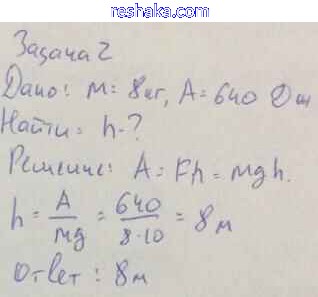 reshaka.com
Задача 2
Дано: m = 8 кг, A = 640 Дж
Найти: h - ?
Решение: A = Fh = mgh.
h = A/mg = 640/8·10 = 8 м
Ответ: 8 м